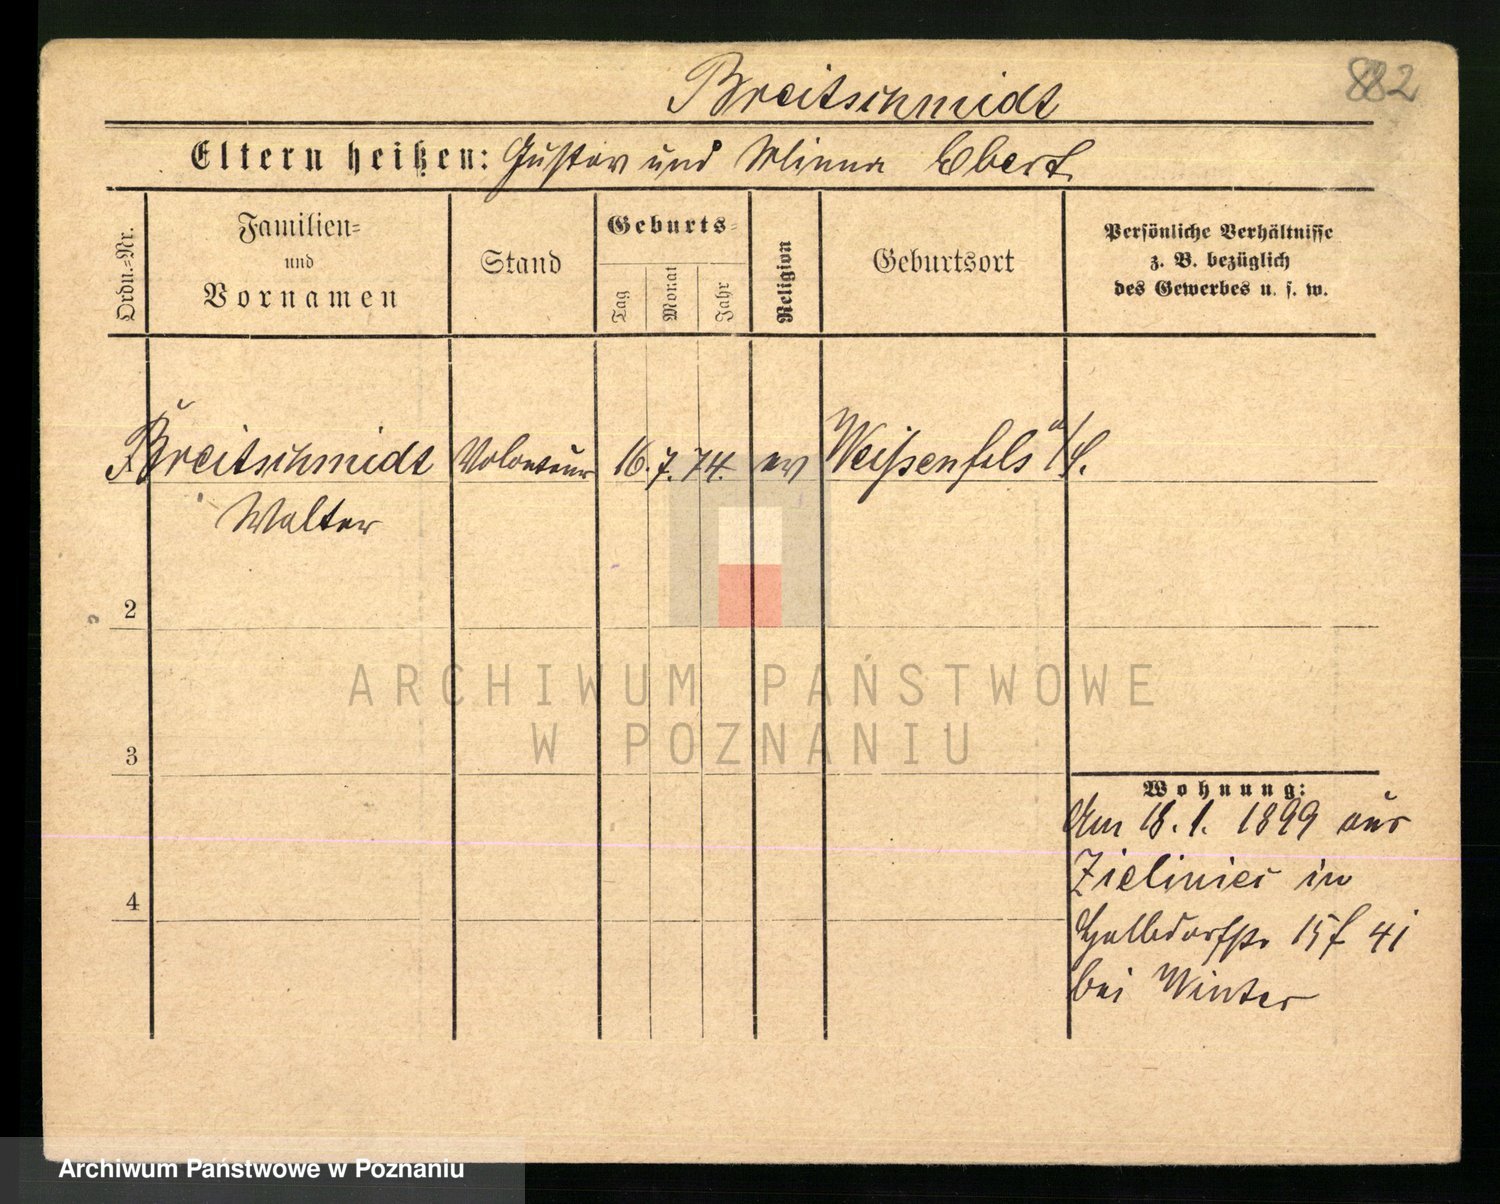 Breitschmidt
882
Eltern heißen: Gustav und Minna Ebert
Ordn.-Nr.
Familien-
und
Vornamen
Stand
Geburts-
Tag
Monat
Jahr
Religion
Geburtsort
Persönliche Verhältnisse
z. B. bezüglich
des Gewerbes u. s. w.
Breitschmidt Volonteur 16. 7. 74. ev Weißenfels a/S.
Walter
2
3
4
Wohnung:
Am 18. 1. 1899 aus
Zieliniec in
Halbdorfstr 15
bei Winter
ARCHIWUM PAŃSTWOWE
W POZNANIU
Archiwum Państwowe w Poznaniu